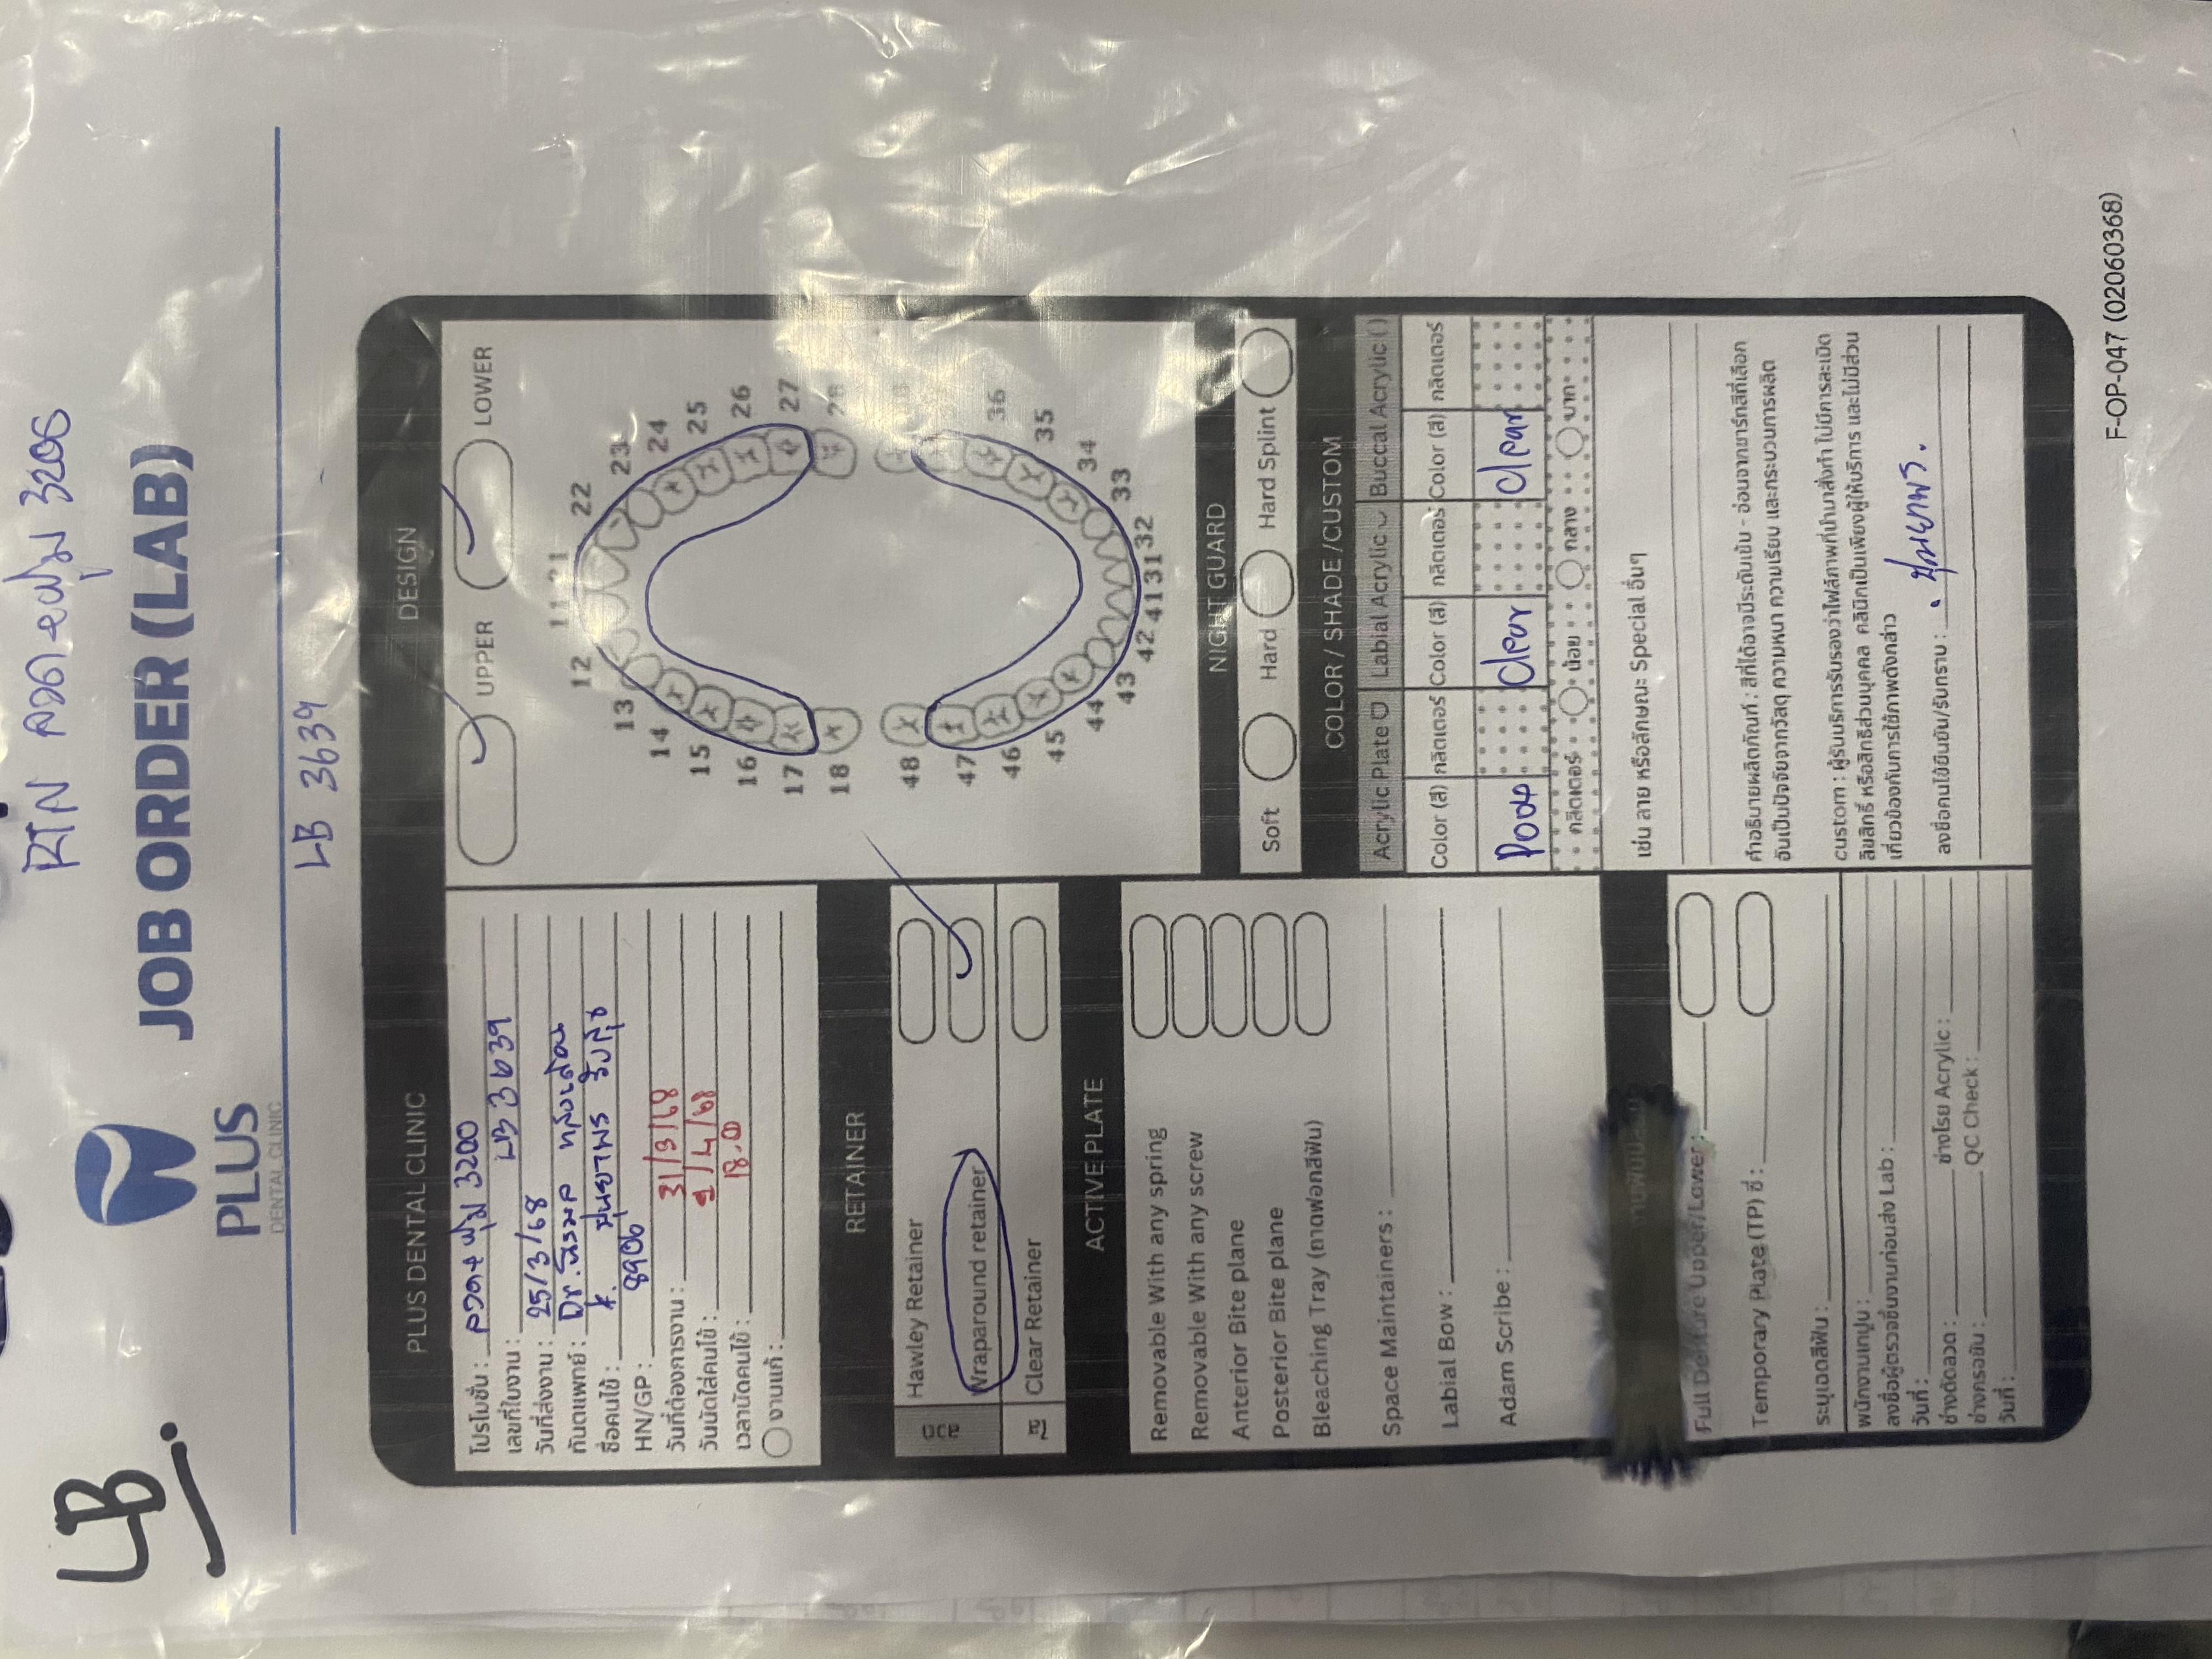 LB.
RTN ลวด+ฟุ่ม 3200
PLUS
DENTAL CLINIC
JOB ORDER (LAB)
LB 3639
PLUS DENTAL CLINIC
โปรโมชั่น : ลวด+ฟุ่ม 3200
เลขที่ใบงาน : LB 3639
วันที่ส่งงาน : 25/3/68
ทันตแพทย์ : Dr.
ชื่อคนไข้ : K. ปุณยาพร
HN/GP : 8906
วันที่ต้องการงาน : 31/3/68
วันนัดใส่คนไข้ : 1/4/68
เวลานัดคนไข้ : 18.00
งานแก้ :
RETAINER
ลวด
Hawley Retainer
Wraparound retainer
ใส
Clear Retainer
ACTIVE PLATE
Removable With any spring
Removable With any screw
Anterior Bite plane
Posterior Bite plane
Bleaching Tray (ถาดฟอกสีฟัน)
Space Maintainers :
Labial Bow :
Adam Scribe :
งานฟันปลอม
Full Denture Upper/Lower :
Temporary Plate (TP) ซี่ :
ระบุเฉดสีฟัน :
พนักงานเทปูน :
ลงชื่อผู้ตรวจชิ้นงานก่อนส่ง Lab :
วันที่ :
ช่างดัดลวด : ช่างโรย Acrylic :
ช่างกรอขัน : QC Check :
วันที่ :
DESIGN
UPPER LOWER
11 21
12 22
13 23
14 24
15 25
16 26
17 27
18 28
48
47
46 36
45 35
44 34
43 33
42 41 31 32
NIGHT GUARD
Soft Hard Hard Splint
COLOR / SHADE /CUSTOM
Acrylic Plate Labial Acrylic Buccal Acrylic ()
Color (สี) กลิตเตอร์ Color (สี) กลิตเตอร์ Color (สี) กลิตเตอร์
Clear Clear
กลิตเตอร์ น้อย กลาง มาก
เช่น ลาย หรือลักษณะ Special อื่นๆ
คำอธิบายผลิตภัณฑ์ : สีที่ได้อาจมีระดับเข้ม - อ่อนจากชาร์ทสีที่เลือก
อันเป็นปัจจัยจากวัสดุ ความหนา ความเรียบ และกระบวนการผลิต
custom : ผู้รับบริการรับรองว่าไฟล์ภาพที่นำมาสั่งทำ ไม่มีการละเมิด
ลิขสิทธิ์ หรือสิทธิส่วนบุคคล คลินิกเป็นเพียงผู้ให้บริการ และไม่มีส่วน
เกี่ยวข้องกับการใช้ภาพดังกล่าว
ลงชื่อคนไข้ยืนยัน/รับทราบ : ปุณยาพร.
F-OP-047 (02060368)